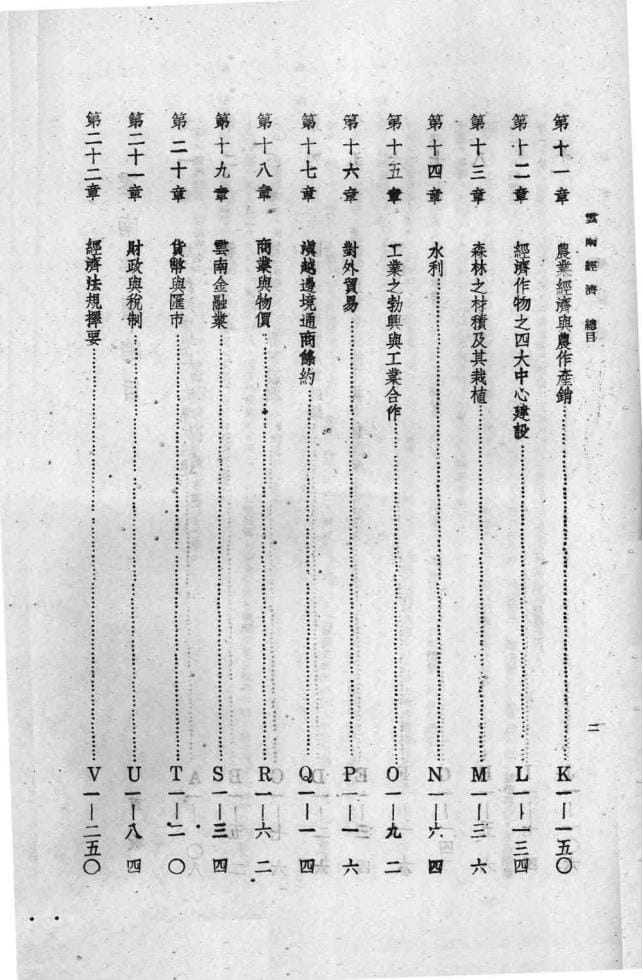 雲南經濟 總目
二
第十一章 農業經濟與農作產銷……K一—一五〇
第十二章 經濟作物之四大中心建設……L一—一三四
第十三章 森林之材積及其栽植……M一—三六
第十四章 水利……N一—六四
第十五章 工業之勃興與工業合作……O一—九二
第十六章 對外貿易……P一—一六
第十七章 滇越邊境通商條約……Q一—一四
第十八章 商業與物價……R一—六二
第十九章 雲南金融業……S一—三四
第二十章 貨幣與匯市……T一—二〇
第二十一章 財政與稅制……U一—八四
第二十二章 經濟法規擇要……V一—二五〇